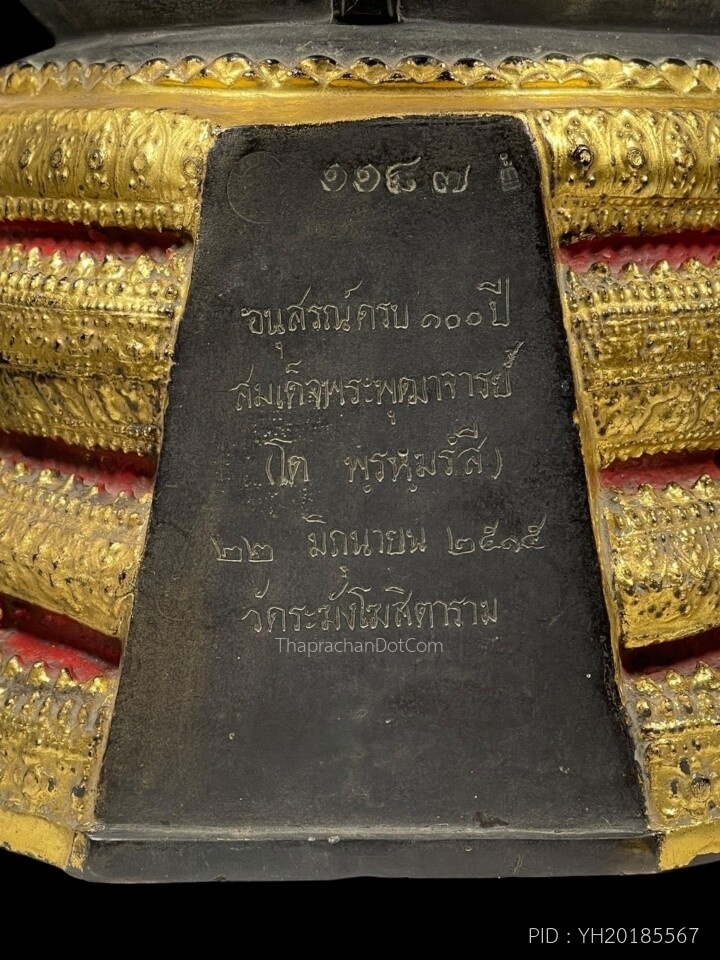 ๑๑๘๗
อนุสรณ์ครบ ๑๐๐ ปี
สมเด็จพระพุฒาจารย์
(โต พฺรหฺมรํสี)
๒๒ มิถุนายน ๒๕๑๕
วัดระฆังโฆสิตาราม
ThaprachanDotCom
PID : YH20185567